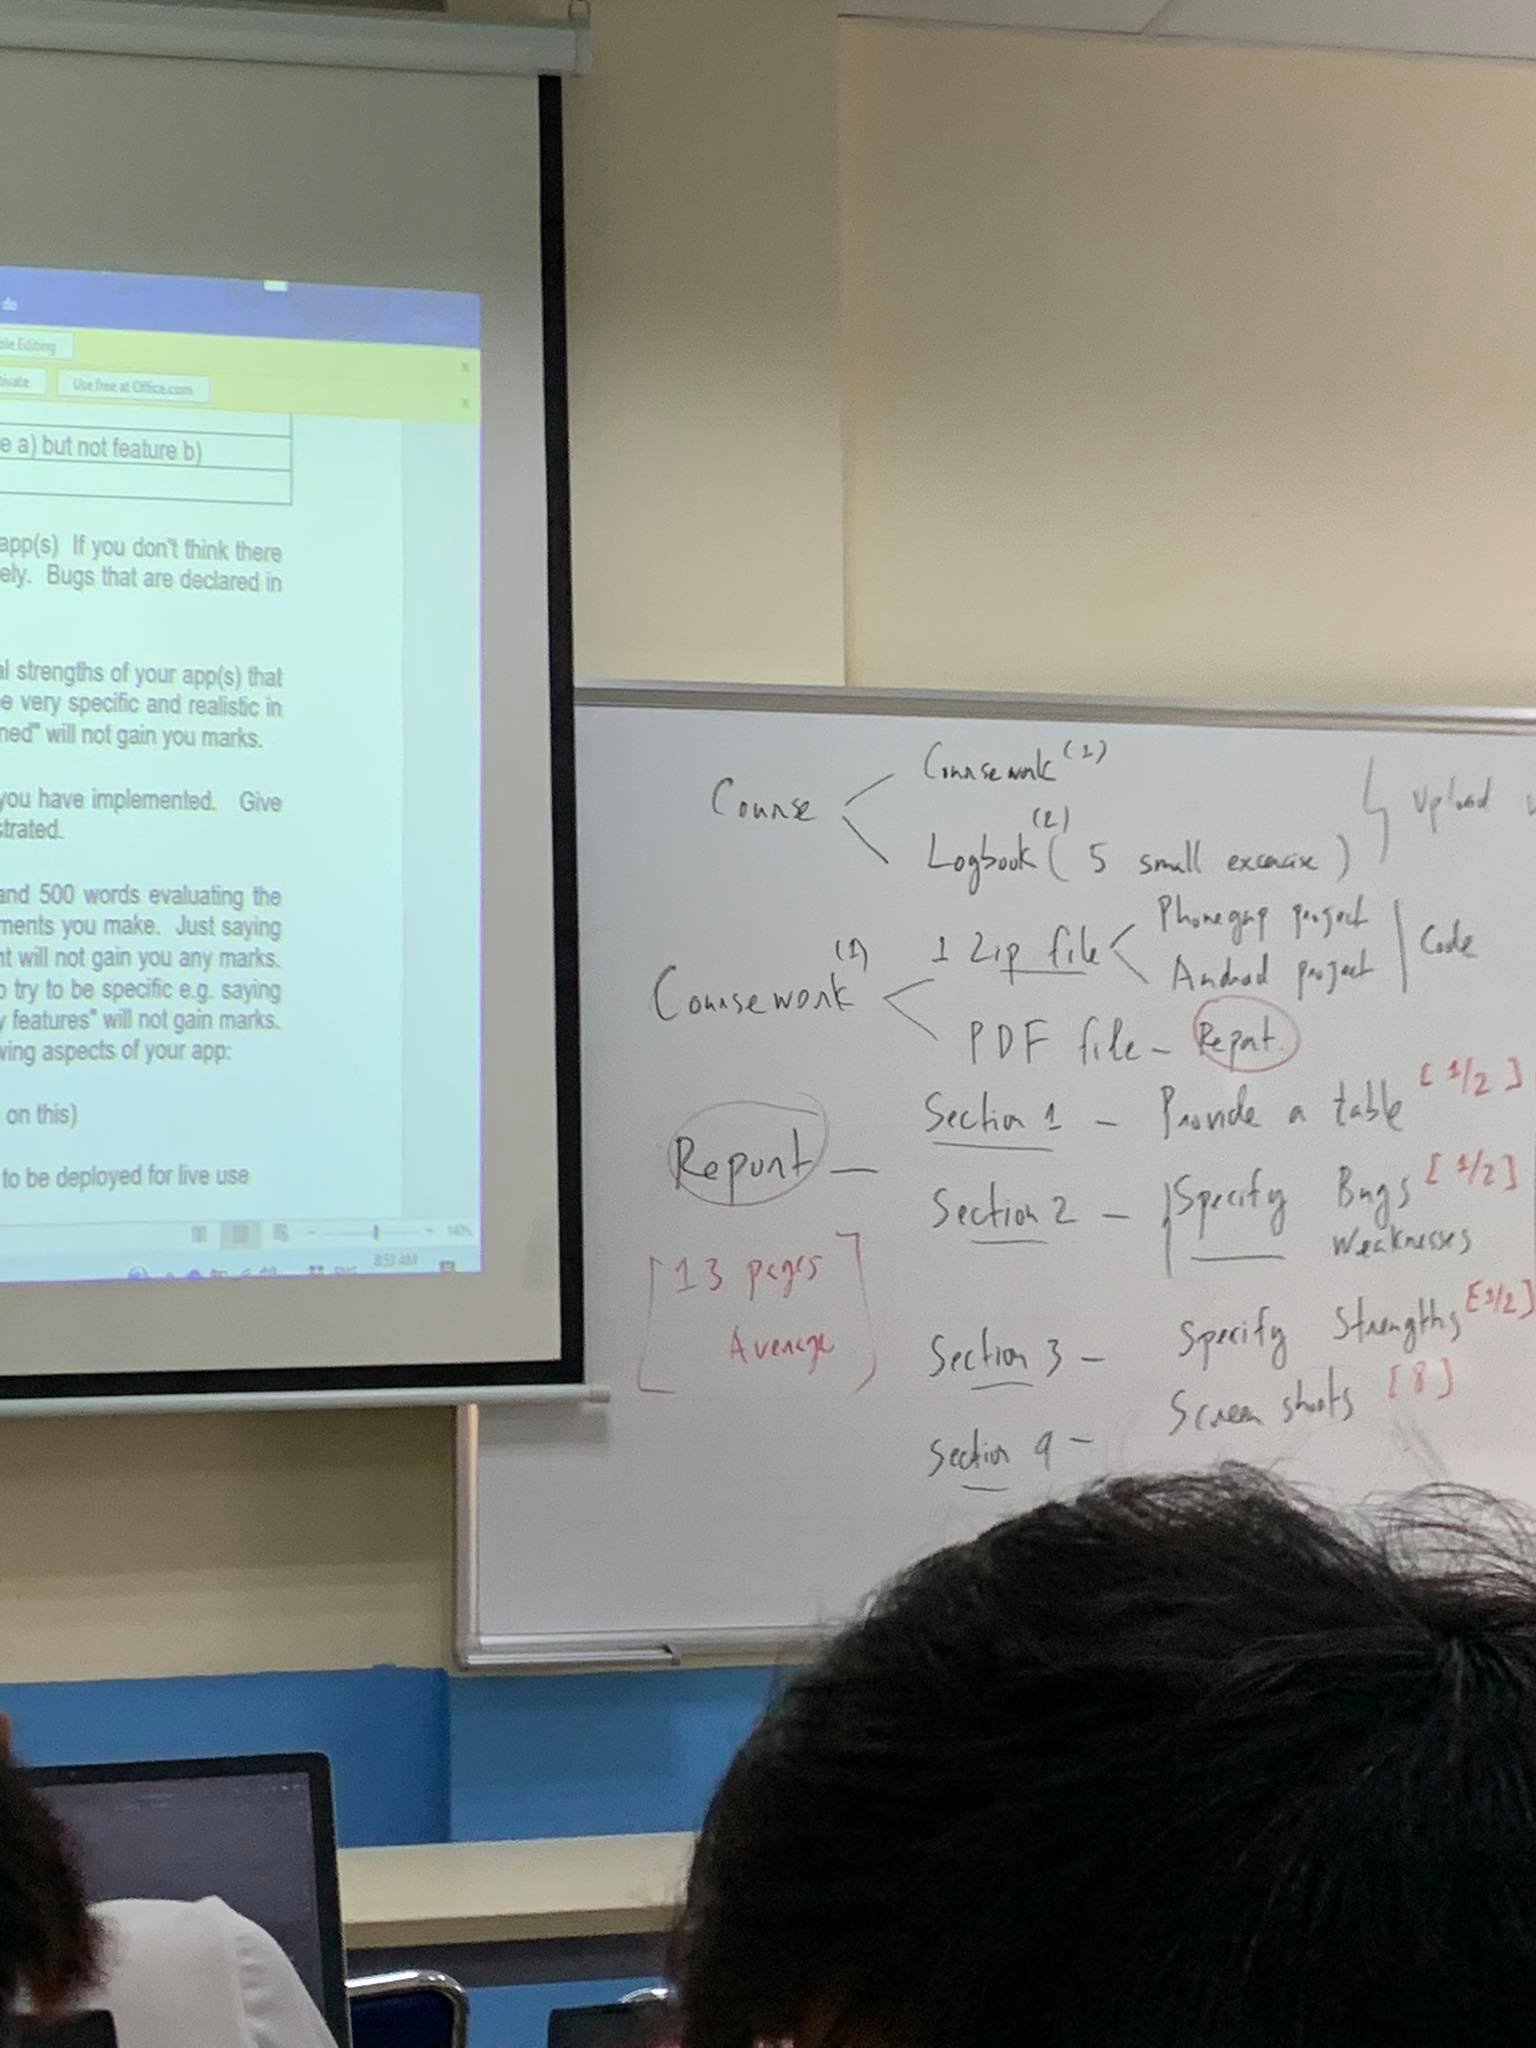 do
ble Editing
tivate
Use free at Office.com
e a) but not feature b)
app(s) If you don't think there
ely. Bugs that are declared in
al strengths of your app(s) that
e very specific and realistic in
ned" will not gain you marks.
you have implemented. Give
strated.
and 500 words evaluating the
ments you make. Just saying
nt will not gain you any marks.
o try to be specific e.g. saying
y features" will not gain marks.
wing aspects of your app:
on this)
to be deployed for live use
140%
ENG
8:53 AM
Course
Coursework (1)
Logbook (2) ( 5 small excercise )
Upload
Coursework (1)
1 Zip file
Phonegap project
Android project
Code
PDF file - Report.
Report -
[13 pages
Average]
Section 1 - Provide a table [1/2]
Section 2 - Specify Bugs [1/2]
Weaknesses
Section 3 - Specify Strengths [1/2]
Section 4 - Screen shoots [8]